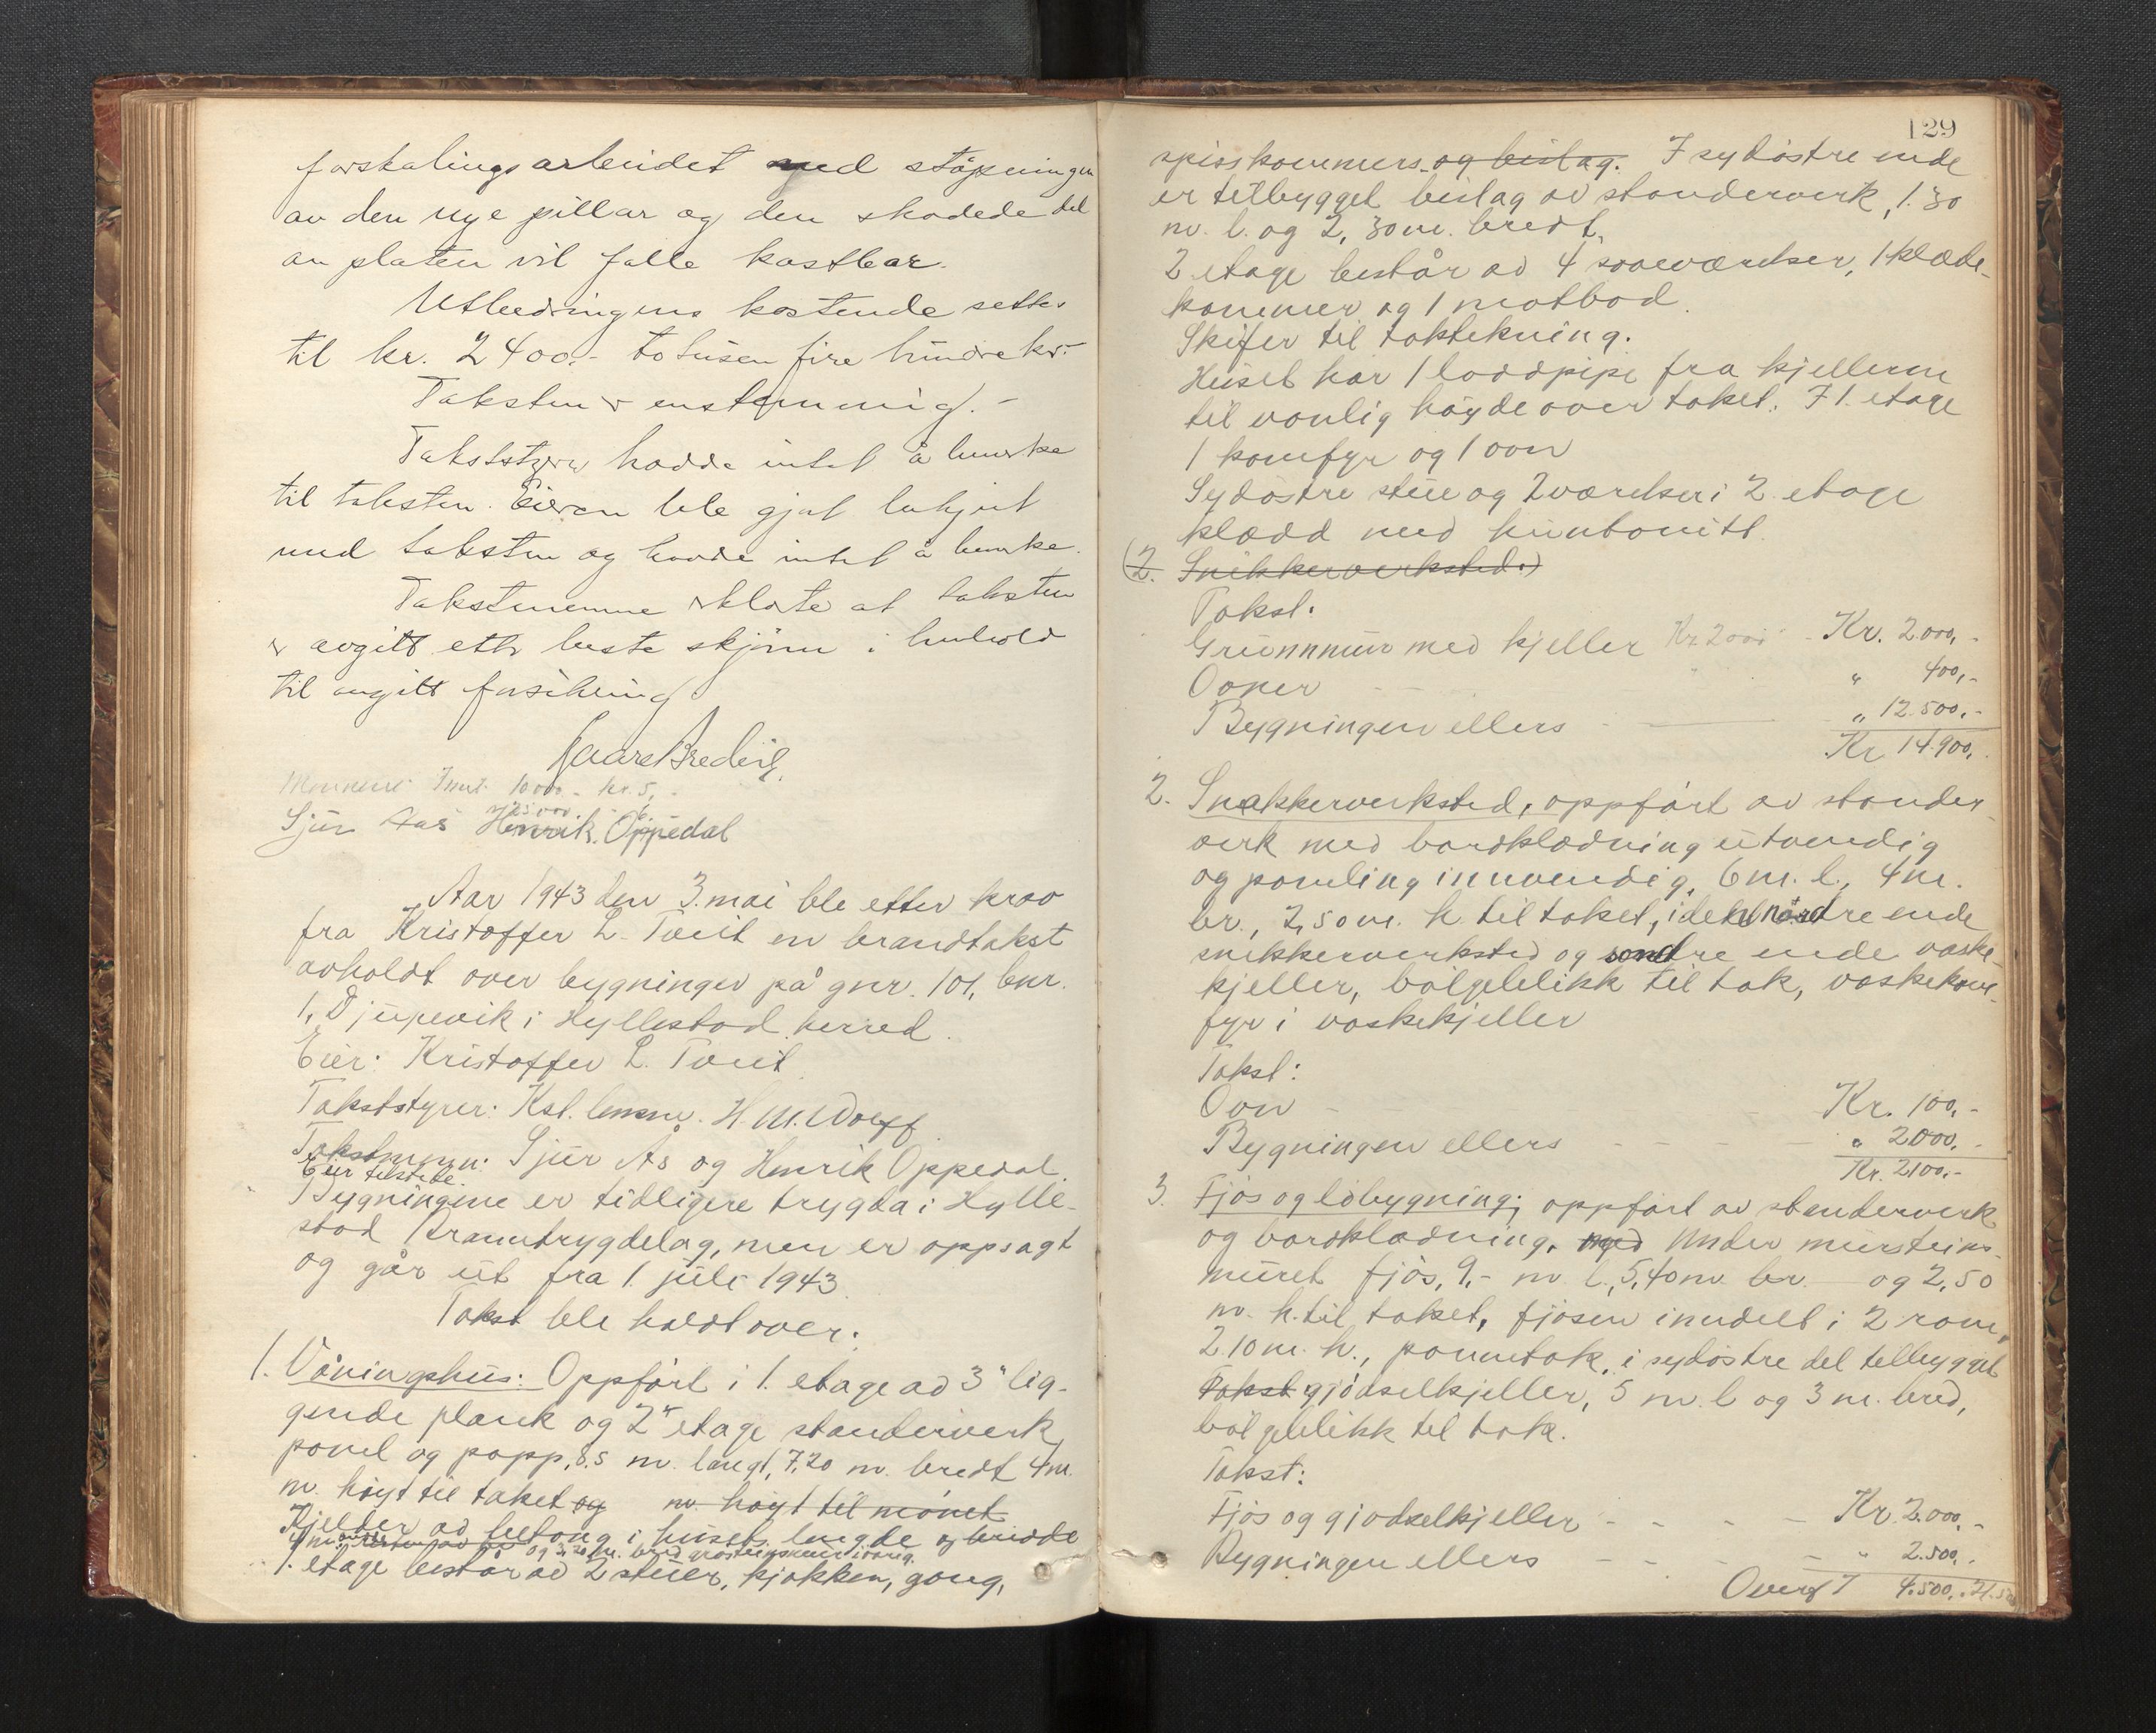 forskalingsarbeidet med støpningen
av den nye pillar og den skadede del
av platen vil falle kostbar.
Utbedringens kostende settes
til kr. 2400.- totusen fire hundre kr.-
Taksten er enstemmig.-
Takststyrer hadde intet å bemerke
til taksten. Eieren ble gjort bekjent
med taksten og hadde intet å bemerke.
Takstmennene erklærte at taksten
er avgitt efter beste skjønn i henhold
til avgitt forsikring.
Sjur Aas Henrik Oppedal
Aar 1943 den 3. mai ble etter krav
fra Kristoffer L. Tveit en brandtakst
avholdt over bygninger på gnr. 101, bnr.
1, Djupevik i Hyllestad herred.
Eier: Kristoffer L. Tveit
Takststyrer: Kst. lensm. H. M. Wolff.
Takstmenn: Sjur Ås og Henrik Oppedal.
Eier tilstede.
Bygningene er tidligere trygda i Hylle-
stad Branntrygdelag, men er oppsagt
og går ut fra 1. juli 1943.
Takst ble holdt over:
1. Våningshus: Oppført i 1. etage av 3" lig-
gende plank og 2 etage standerverk,
panel og papp, 8.5 m. langt, 7,20 m. bredt 4 m.
m. høyt til taket og m. høyt til mønet
Kjeller av betong i husets lengde og bredde
og 3,20 m. bred gråsteinsmur i øvrig.
1. etage består av 2 stuer, kjøkken, gang,
129
spisskammers og beislag. I sydøstre ende
er tilbygget beislag av standerverk, 1.30
m. l. og 2,30 m. bredt.
2 etage består av 4 soveværelser, 1 klæde-
kammer og 1 matbod.
Skifer til taktekning.
Huset har 1 loddpipe fra kjelleren
til vanlig høyde over taket. I 1. etage
1 komfyr og 1 ovn
Sydøstre stue og 2 værelser i 2. etage
klædd med huntonitt.
(2. Snikkerverksted.)
Takst:
Grunnmur med kjeller Kr. 2000 - Kr. 2.000,-
Ovner " 400,-
Bygningen ellers " 12.500,-
Kr 14.900,-
2. Snekkerverksted, oppført av stander-
verk med bordklædning utvendig
og paneling innvendig, 6 m. l., 4 m.
br., 2,50 m. h. til taket, i del nordre ende
snikkerverksted og søndre ende vaske-
kjeller, bølgeblikk til tak, vaskekom-
fyr i vaskekjeller
Takst:
Ovn - Kr. 100,-
Bygningen ellers - - - - " 2000,-
Kr. 2100,-
3. Fjøs og løbygning; oppført av standerverk
og bordklædning, med Under mursteins-
muret fjøs, 9,- m. l., 5,40 m. br. og 2,50
m. h. til taket, fjøsen inndelt i 2 rom,
2.10 m. h., panntak, i sydøstre del tilbygget
Takst gjødselkjeller, 5 m. l og 3 m. bred,
bølgeblikk til tak.
Takst:
Fjøs og gjødselkjeller - - - - Kr. 2.000,-
Bygningen ellers - - - - " 2.500,-
Overf 4.500,-